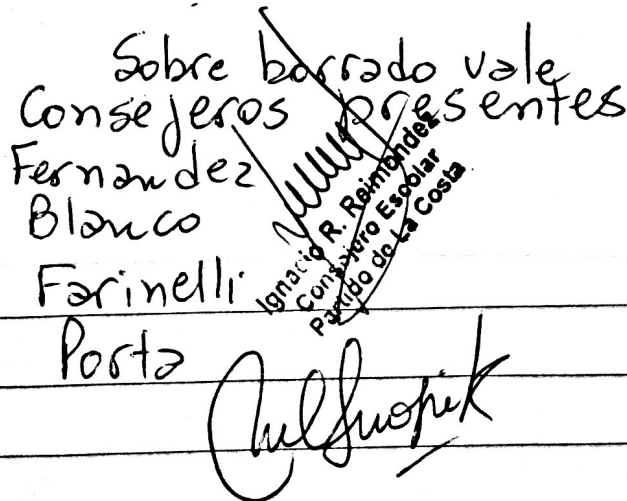 Sobre borrado vale
Consejeros presentes
Fernandez
Blanco
Farinelli
Porta
Ignacio R. Reimondez
Consejero Escolar
Partido de La Costa